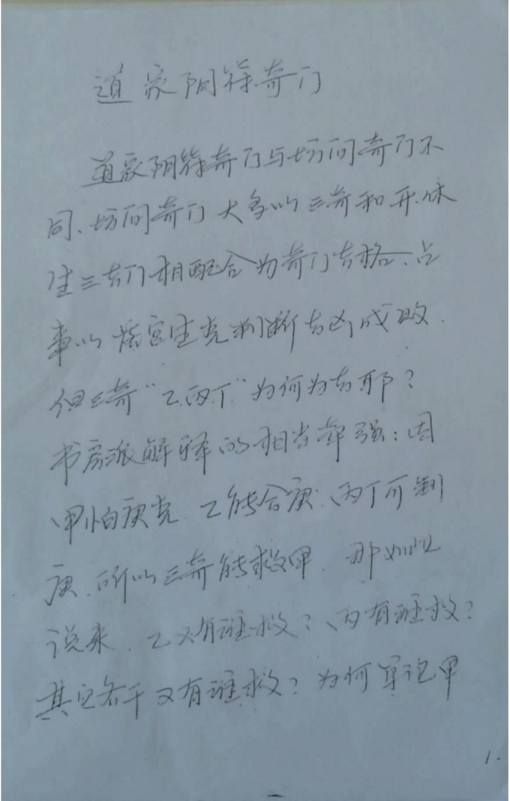 道家阴符奇门
道家阴符奇门与坊间奇门不
同、坊间奇门大多以三奇和开.休
生三吉门相配合为奇门吉格、占
事以落宫生克判断吉凶成败.
但三奇“乙.丙.丁”为何为吉耶？
书房派解释的相当牵强：因
甲怕庚克.乙能合庚、丙丁可制
庚.所以三奇能救甲.那如此
说来.乙又有谁救？丙有谁救？
其它各干又有谁救？为何单说甲
1.